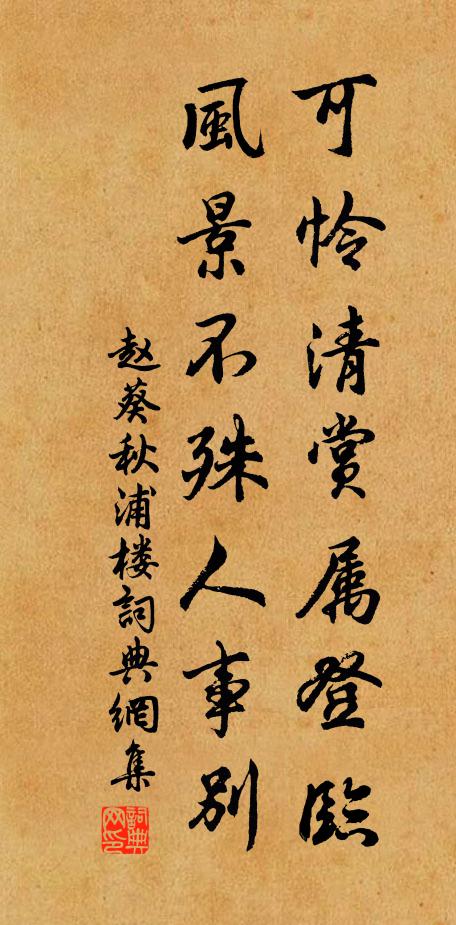 可怜清赏属登临
風景不殊人事别
赵葵秋浦楼詞典網集
詞典网印